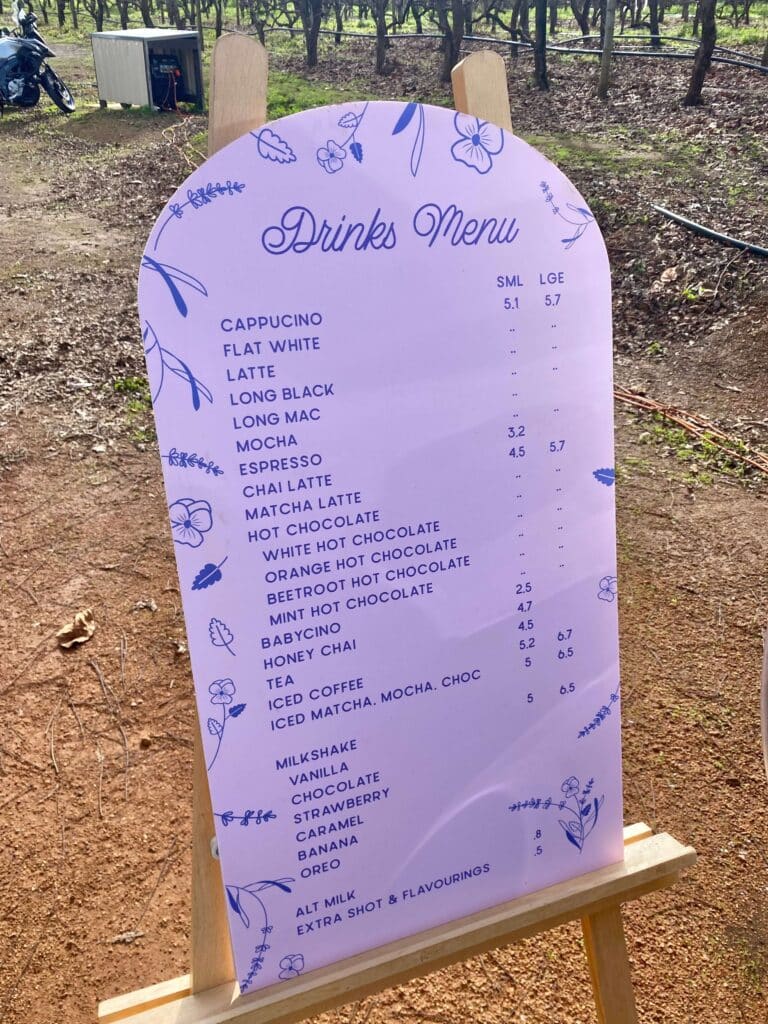 Drinks Menu
SML LGE
CAPPUCINO 5.1 5.7
FLAT WHITE .. ..
LATTE .. ..
LONG BLACK .. ..
LONG MAC ..
MOCHA .. ..
ESPRESSO 3.2
CHAI LATTE 4.5 5.7
MATCHA LATTE .. ..
HOT CHOCOLATE .. ..
WHITE HOT CHOCOLATE .. ..
ORANGE HOT CHOCOLATE .. ..
BEETROOT HOT CHOCOLATE .. ..
MINT HOT CHOCOLATE .. ..
BABYCINO 2.5
HONEY CHAI 4.7
TEA 4.5
ICED COFFEE 5.2 6.7
ICED MATCHA, MOCHA, CHOC 5 6.5
MILKSHAKE 5 6.5
VANILLA
CHOCOLATE
STRAWBERRY
CARAMEL
BANANA
OREO
ALT MILK .8
EXTRA SHOT & FLAVOURINGS .5